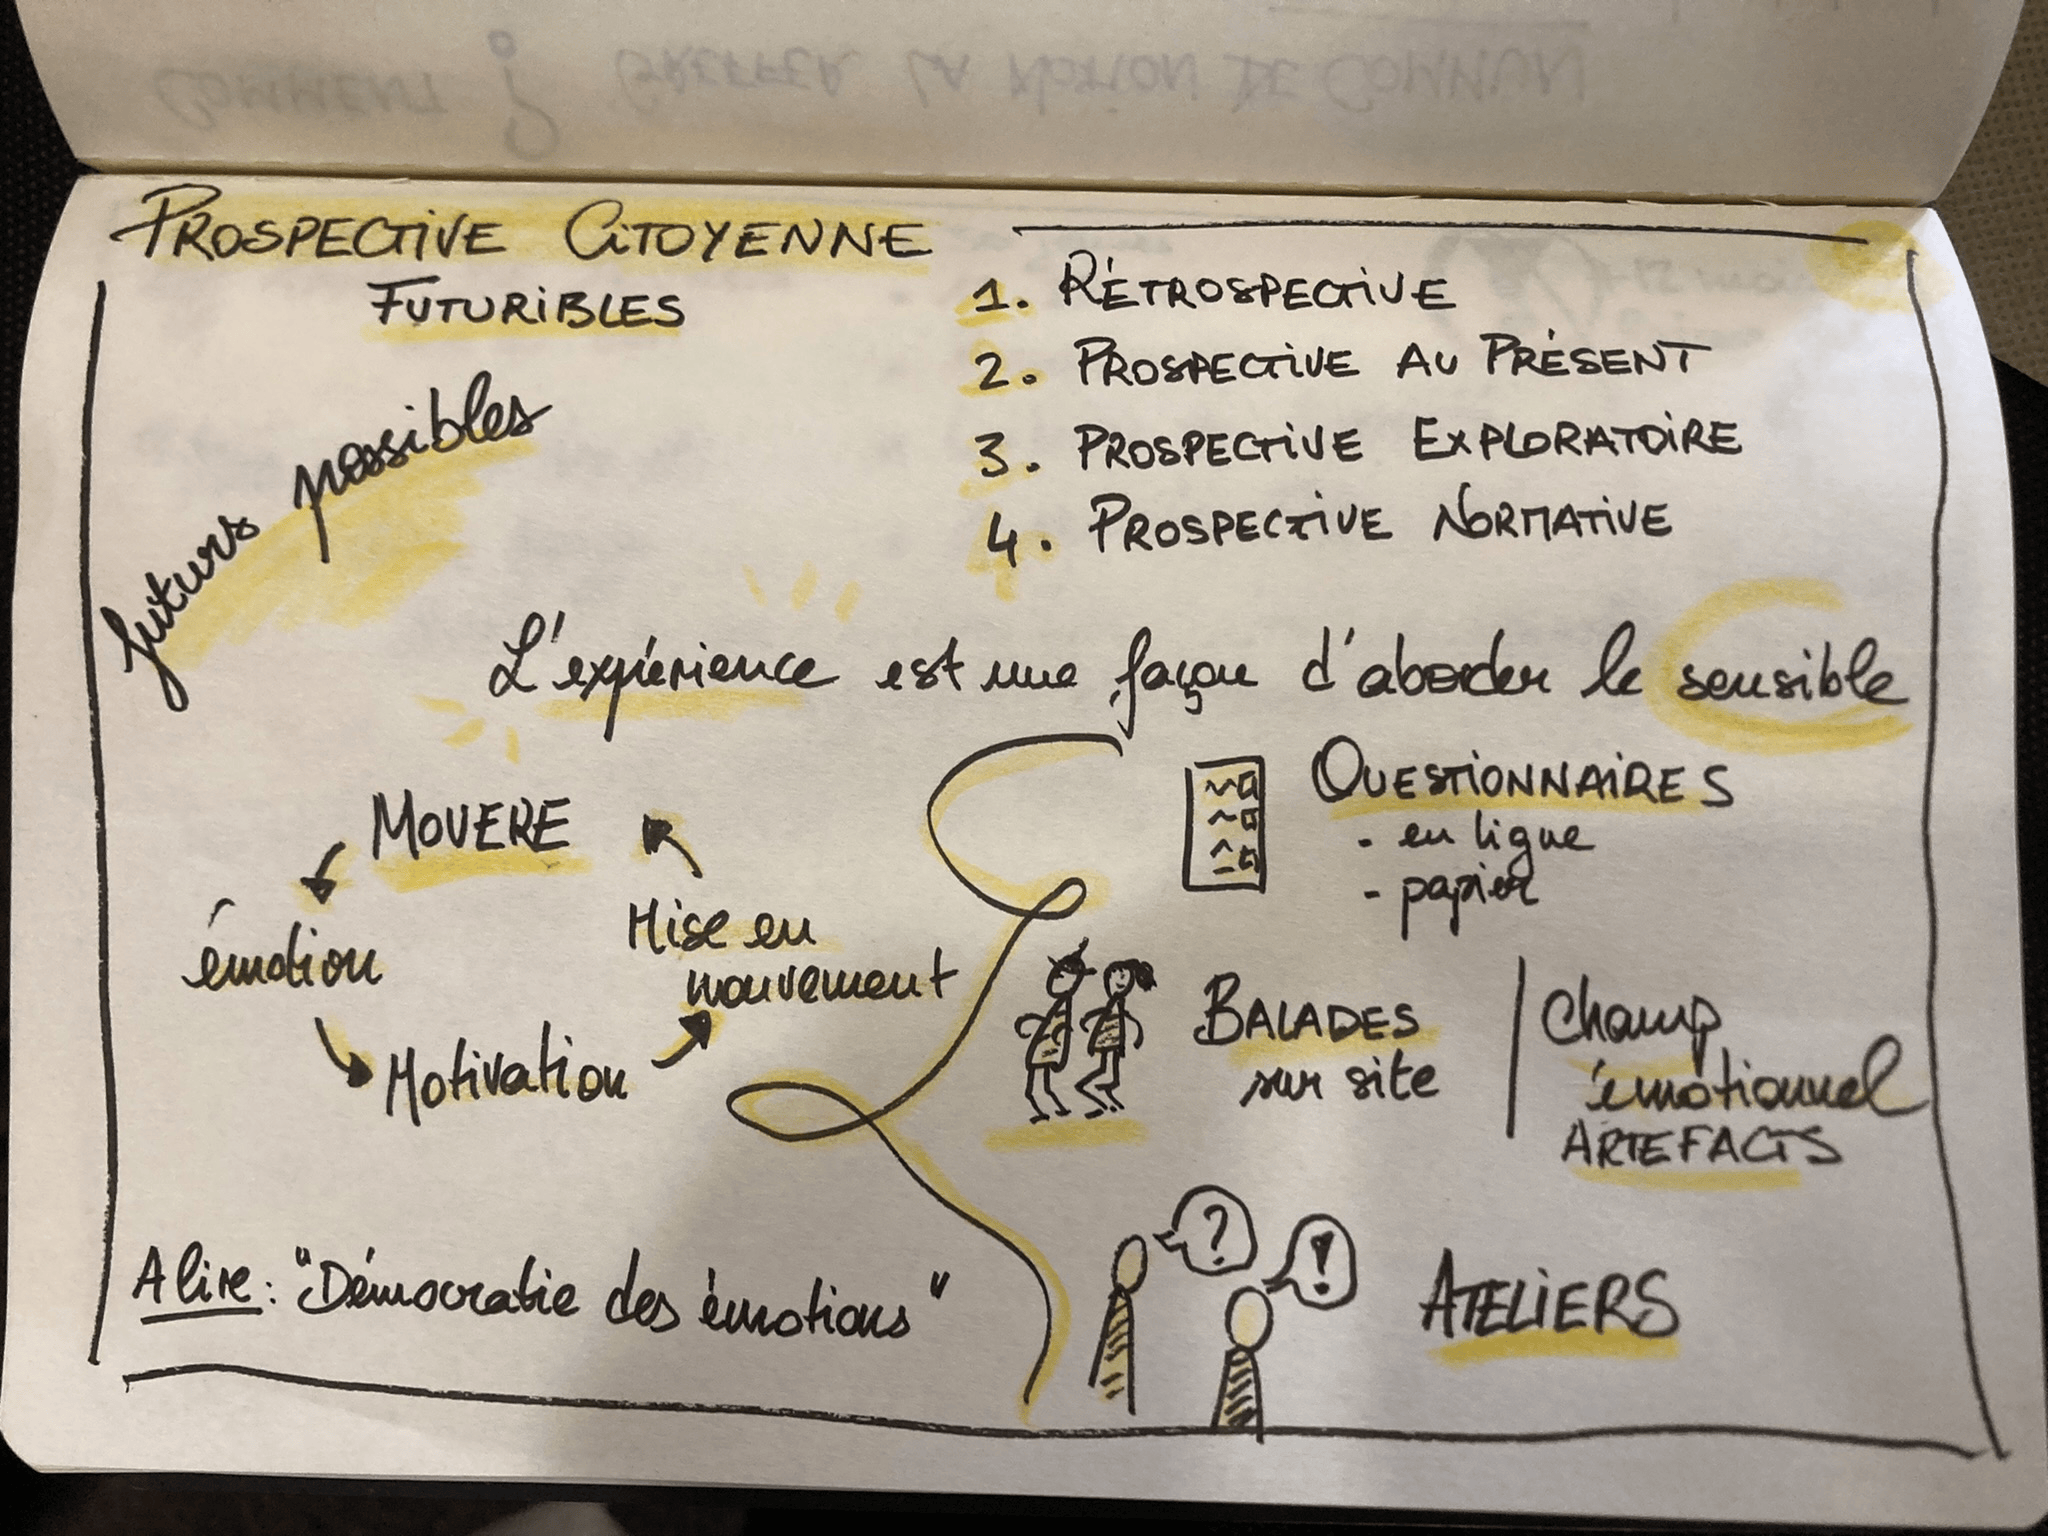 COMMENT ? GREFFER LA NOTION DE COMMUN
PROSPECTIVE CITOYENNE
FUTURIBLES
futurs possibles
1. RÉTROSPECTIVE
2. PROSPECTIVE AU PRÉSENT
3. PROSPECTIVE EXPLORATOIRE
4. PROSPECTIVE NORMATIVE
L'expérience est une façon d'aborder le sensible
MOVERE
émotion
Motivation
Mise en
mouvement
QUESTIONNAIRES
- en ligne
- papier
BALADES
sur site
Champ
émotionnel
ARTEFACTS
?
!
ATELIERS
A lire : "Démocratie des émotions"